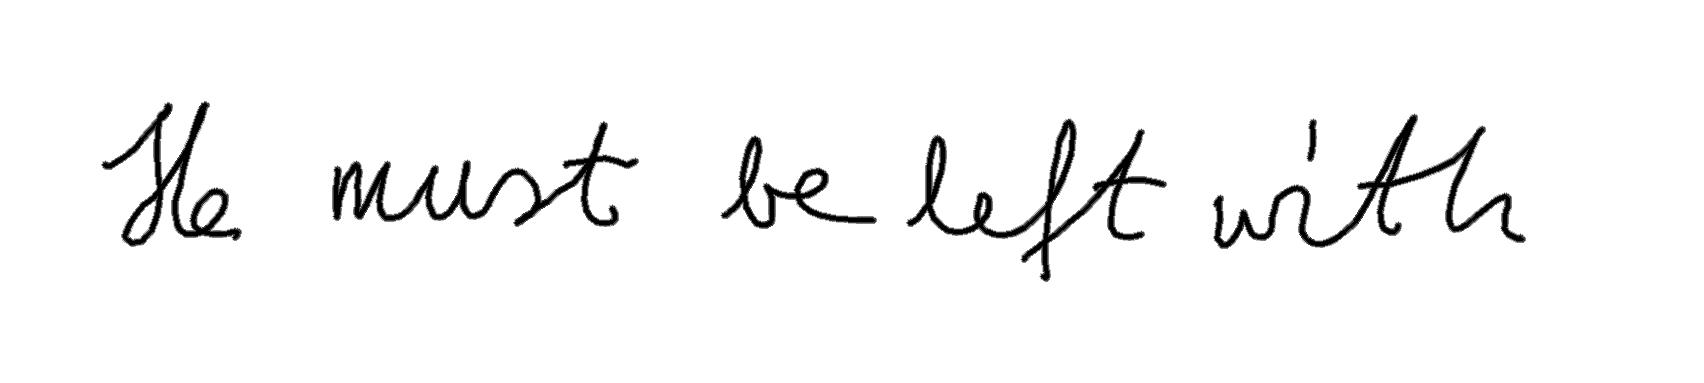 He must be left with